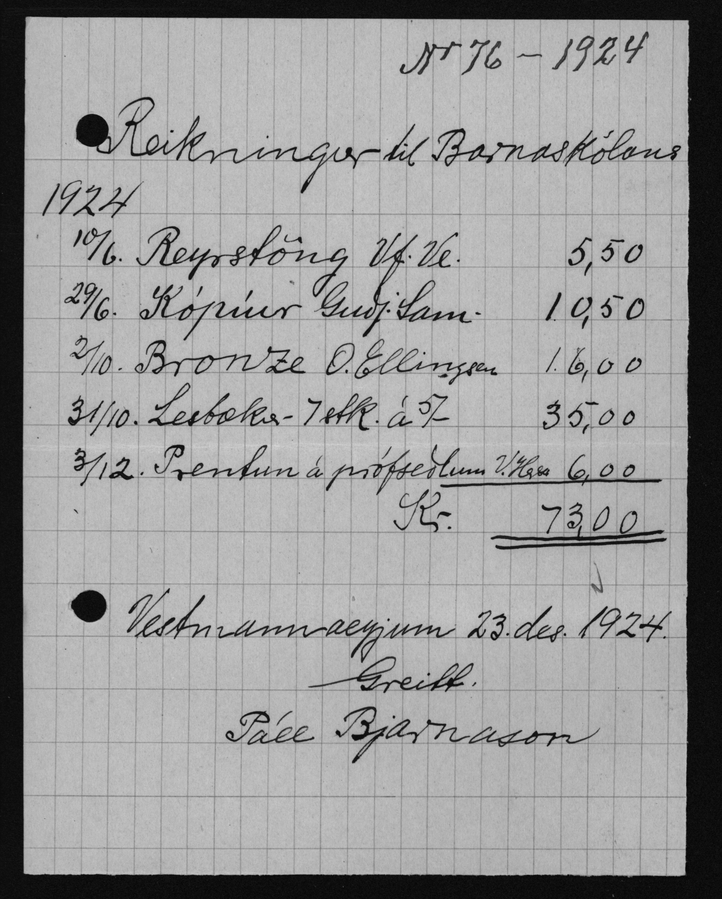 Nr 76 - 1924
Reikningur til Barnaskólans
1924
10/6. Reyrstöng Vf. Ve. 5,50
29/6. Kópíur Guðj. Sam- 10,50
2/10. Bronze O. Ellingsen 16,00
31/10. Lesbækur- 7 stk. á 5/- 35,00
3/12. Prentun á prófseðlum V. 6,00
Kr. 73,00
Vestmannaeyjum 23. des. 1924.
Greitt.
Páll Bjarnason